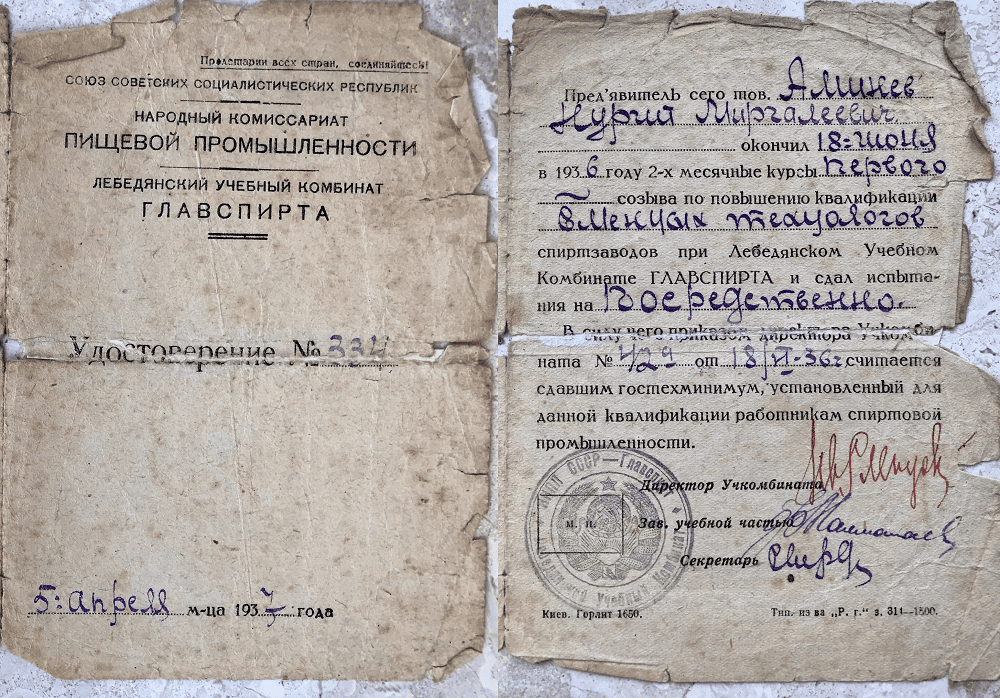 Пролетарии всех стран, соединяйтесь!
СОЮЗ СОВЕТСКИХ СОЦИАЛИСТИЧЕСКИХ РЕСПУБЛИК
НАРОДНЫЙ КОМИССАРИАТ
ПИЩЕВОЙ ПРОМЫШЛЕННОСТИ
ЛЕБЕДЯНСКИЙ УЧЕБНЫЙ КОМБИНАТ
ГЛАВСПИРТА
Удостоверение № 334
5: апреля м-ца 1937 года
Пред'явитель сего тов. Аминев
Нургий Миргалеевич.
окончил 18: июня
в 1936 году 2-х месячные курсы первого
созыва по повышению квалификации
сменных технологов
спиртзаводов при Лебедянском Учебном
Комбинате ГЛАВСПИРТА и сдал испыта-
ния на Посредственно.
В силу чего приказом директора Учкомби-
ната № 429 от 18/VI-36г считается
сдавшим гостехминимум, установленный для
данной квалификации работникам спиртовой
промышленности.
НКПП СССР — Главспирт
Учебный Комбинат
м. п.
Директор Учкомбината
Зав. учебной частью
Секретарь
Киев. Горлит 1650.
Тип. из ва „Р. г." з. 311—1500.